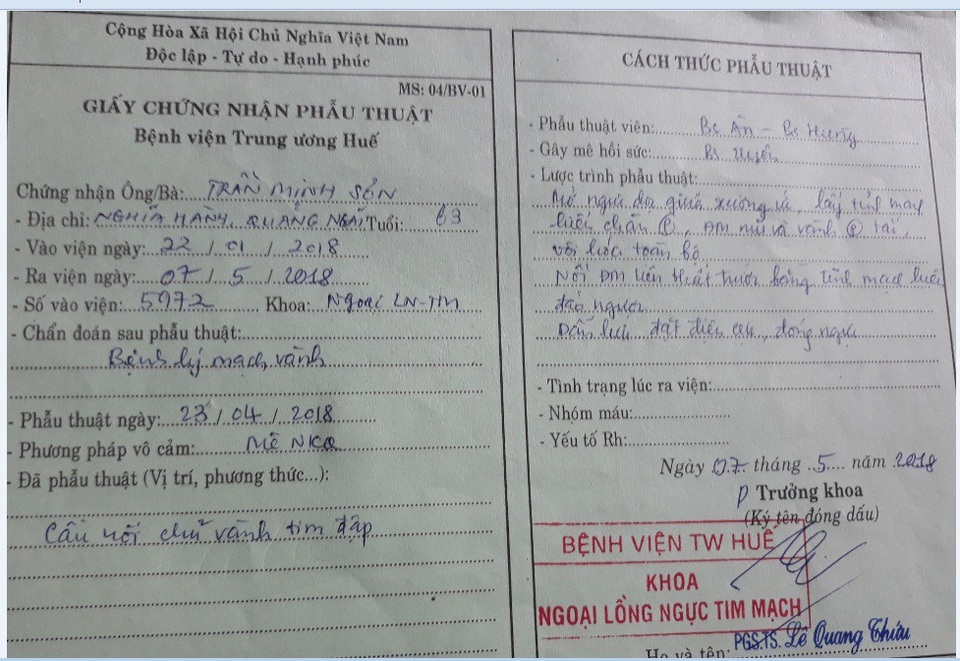 Cộng Hòa Xã Hội Chủ Nghĩa Việt Nam
Độc lập - Tự do - Hạnh phúc
MS: 04/BV-01
GIẤY CHỨNG NHẬN PHẪU THUẬT
Bệnh viện Trung ương Huế
Chứng nhận Ông/Bà: TRẦN MINH SƠN
- Địa chỉ: NGHĨA HÀNH, QUẢNG NGÃI Tuổi: 63
- Vào viện ngày: 22 / 01 / 2018
- Ra viện ngày: 07 / 5 / 2018
- Số vào viện: 5972 Khoa: Ngoại LN-TM
- Chẩn đoán sau phẫu thuật:
Bệnh lý mạch vành
- Phẫu thuật ngày: 23 / 04 / 2018
- Phương pháp vô cảm: Mê NKQ
- Đã phẫu thuật (Vị trí, phương thức...):
Cầu nối chủ vành tim đập
CÁCH THỨC PHẪU THUẬT
- Phẫu thuật viên: Bs Ân - Bs Hương
- Gây mê hồi sức: Bs
- Lược trình phẫu thuật:
Mở ngực dọc giữa xương ức, lấy tĩnh mạch
hiển chân, ĐM mũ và vành
với toàn bộ
Nối ĐM liên thất trước bằng tĩnh mạch hiển
đảo ngược
Dẫn lưu, đặt điện cực, đóng ngực
- Tình trạng lúc ra viện:
- Nhóm máu:
- Yếu tố Rh:
Ngày 07 tháng 5 năm 2018
P Trưởng khoa
(Ký tên đóng dấu)
BỆNH VIỆN TW HUẾ
KHOA
NGOẠI LỒNG NGỰC TIM MẠCH
Họ và tên: PGS.TS. Lê Quang Thứu